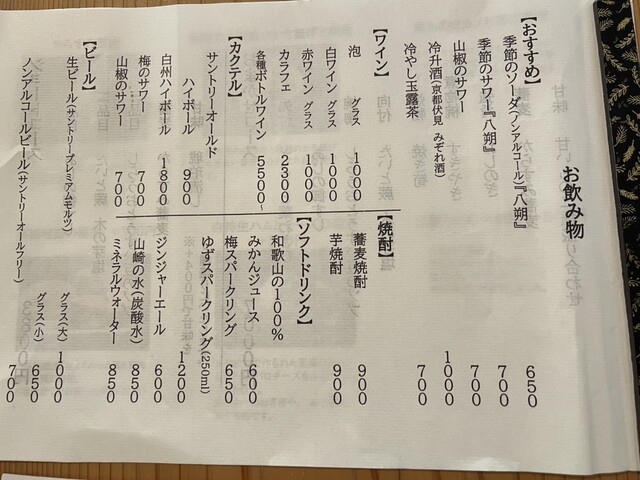 お飲み物
【おすすめ】
季節のソーダ(ノンアルコール)『八朔』 650
季節のサワー『八朔』 700
山椒のサワー 700
冷升酒(京都伏見 みぞれ酒) 1000
冷やし玉露茶 700
【ワイン】
泡 グラス 1000
白ワイン グラス 1000
赤ワイン グラス 1000
カラフェ 2300
各種ボトルワイン 5500~
【カクテル】
サントリーオールド
ハイボール 900
白州ハイボール 1800
梅のサワー 700
山椒のサワー 700
【焼酎】
蕎麦焼酎 900
芋焼酎 900
【ソフトドリンク】
和歌山の100%
みかんジュース 600
梅スパークリング 650
ゆずスパークリング(250ml) 1200
ジンジャーエール 600
山崎の水(炭酸水) 850
ミネラルウォーター 850
【ビール】
生ビール(サントリープレミアムモルツ)
グラス(大) 1000
グラス(小) 650
ノンアルコールビール(サントリーオールフリー) 700